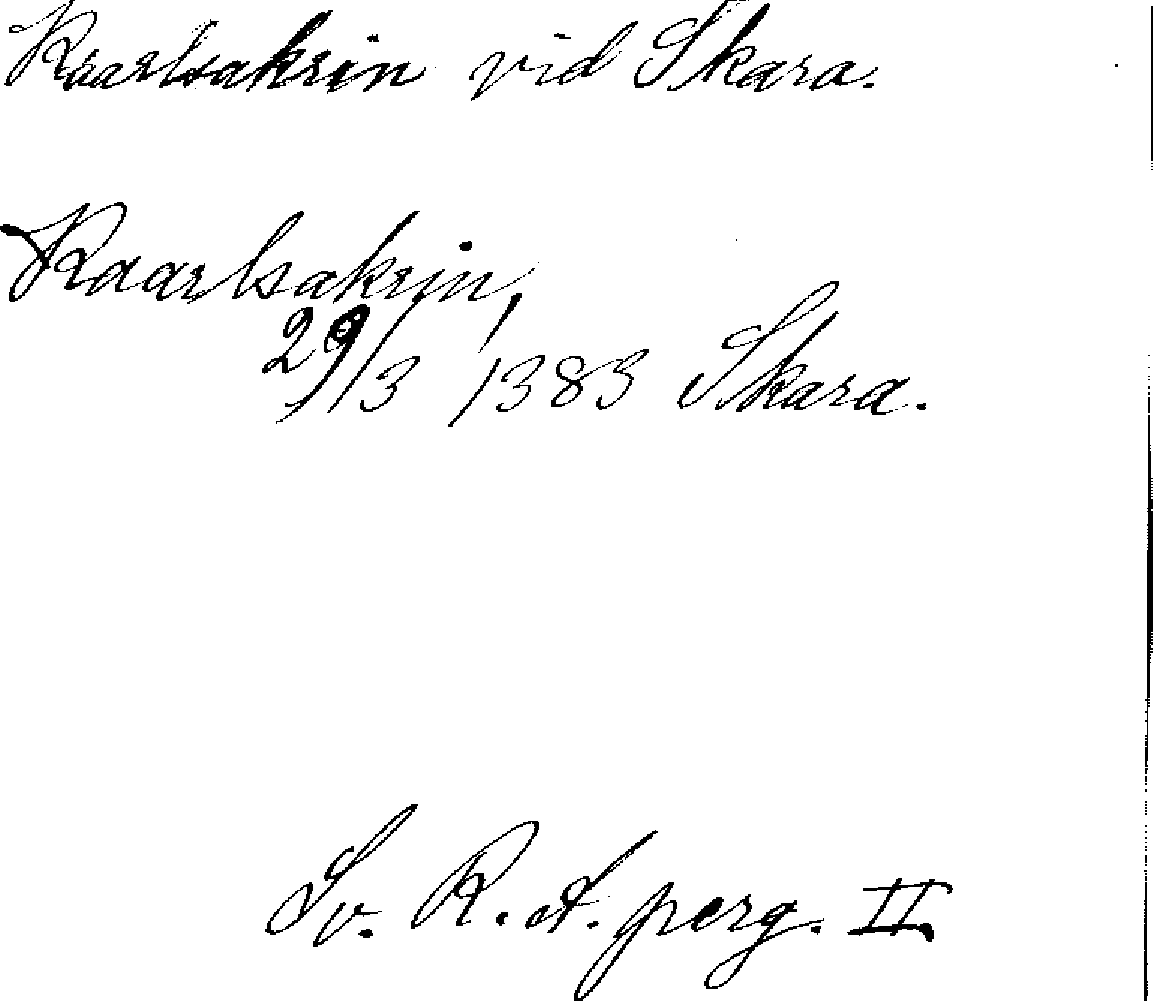 Kaarlsakrin vid Skara.
Kaarlsakrin,
29/3 1383 Skara.
Sv. R. A. perg. II.